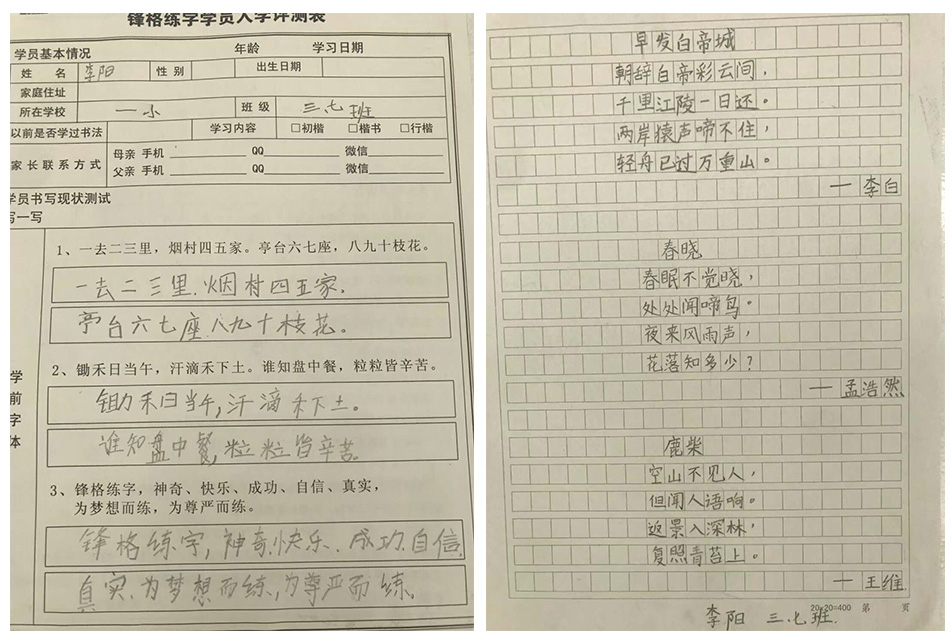 锋格练字学员入学评测表
学员基本情况 年龄 学习日期
姓 名 李阳 性 别 出生日期
家庭住址
所在学校 一小 班 级 三.七班
以前是否学过书法 学习内容 □初楷 □楷书 □行楷
家长联系方式 母亲 手机 QQ 微信
父亲 手机 QQ 微信
学员书写现状测试
写一写
1、一去二三里，烟村四五家。亭台六七座，八九十枝花。
一去二三里.烟村四五家.
亭台六七座.八九十枝花.
2、锄禾日当午，汗滴禾下土。谁知盘中餐，粒粒皆辛苦。
锄禾日当午,汗滴禾下土。
谁知盘中餐,粒粒皆辛苦.
3、锋格练字，神奇、快乐、成功、自信、真实，
为梦想而练，为尊严而练。
锋格练字,神奇.快乐.成功.自信.
真实.为梦想而练,为尊严而练.
学
前
字
体
早发白帝城
朝辞白帝彩云间，
千里江陵一日还。
两岸猿声啼不住，
轻舟已过万重山。
一李白
春晓
春眠不觉晓，
处处闻啼鸟。
夜来风雨声，
花落知多少？
一孟浩然
鹿柴
空山不见人，
但闻人语响。
返景入深林，
复照青苔上。
一王维
20×20=400 第 页
李阳 三.七班.